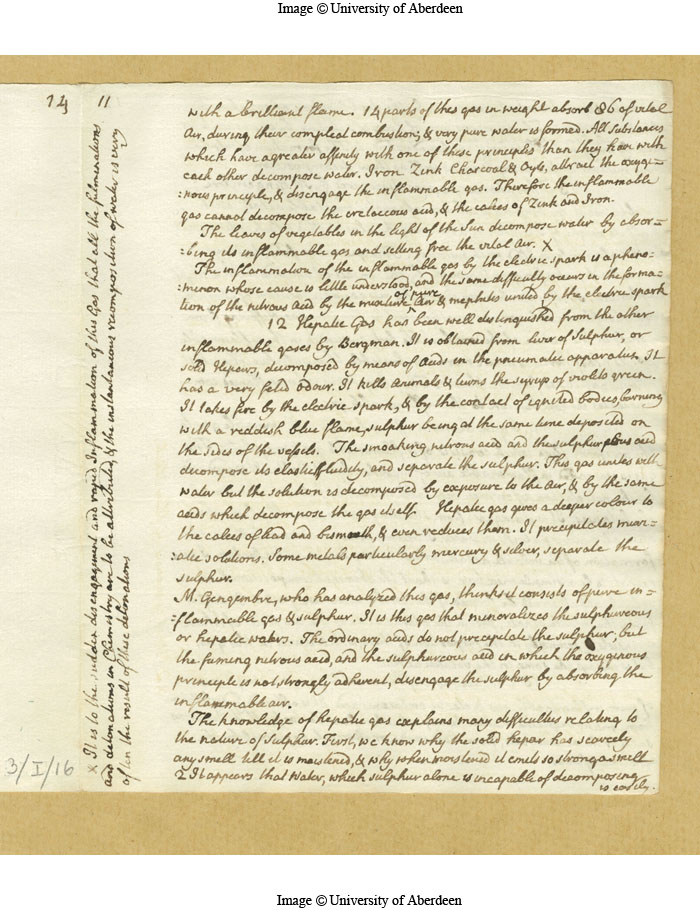 Image © University of Aberdeen
14
11
with a brilliant flame. 14 parts of this gas in weight absorb 86 of vital
Air, during their compleat combustion, & very pure water is formed. All Substances
which have a greater affinity with one of these principles than they have with
each other decompose water. Iron Zink Charcoal & Oyls, attract the oxyge-
:nous principle, & disengage the inflammable gas. Therefore the inflammable
gas cannot decompose the cretaceous acid, & the calces of Zink and Iron.
The leaves of vegetables in the light of the Sun decompose water by absor-
:bing its inflammable gas and setting free the vital Air. X
The inflammation of the inflammable gas by the electric spark is a pheno-
:menon whose cause is little understood, and the same difficulty occurs in the forma-
tion of the nitrous Acid by the mixture of pure Air & mephitis united by the electric spark
12 Hepatic Gas has been well distinguished from the other
inflammable gases by Bergman. It is obtained from liver of Sulphur, or
solid Hepars, decomposed by means of Acids in the pneumatic apparatus. It
has a very fetid odour. It kills Animals & turns the syrup of violets green.
It takes fire by the electric spark, & by the contact of ignited bodies, burning
with a reddish blue flame, sulphur being at the same time deposited on
the sides of the vessels. The smoaking nitrous acid and the sulphureous acid
decompose its elastic fluidity, and separate the sulphur. This gas unites with
water but the solution is decomposed by exposure to the Air, & by the same
acids which decompose the gas itself. Hepatic gas gives a deeper colour to
the calces of lead and bismuth, & even reduces them. It precipitates muri-
:atic solutions. Some metals particularly mercury & silver, separate the
sulphur.
M. Gengembre, who has analyzed this gas, thinks it consists of pure in-
:flammable gas & sulphur. It is this gas that mineralizes the sulphureous
or hepatic waters. The ordinary acids do not precipitate the sulphur, but
the fuming nitrous acid, and the sulphureous acid in which the oxygenous
principle is not strongly adherent, disengage the sulphur by absorbing the
inflammable air.
The knowledge of hepatic gas explains many difficulties relating to
the nature of Sulphur. First, we know why the solid hepar has scarcely
any smell till it is moistened, & why when moistened it emits so strong a smell
2 It appears that Water, which sulphur alone is incapable of decomposing
is easily.
X It is to the sudden disengagement and rapid Inflammation of this Gas that all the fulminations
and detonations in Chemistry are to be attributed, & the instantaneous recomposition of water is very
often the result of these detonations
3/I/16
Image © University of Aberdeen